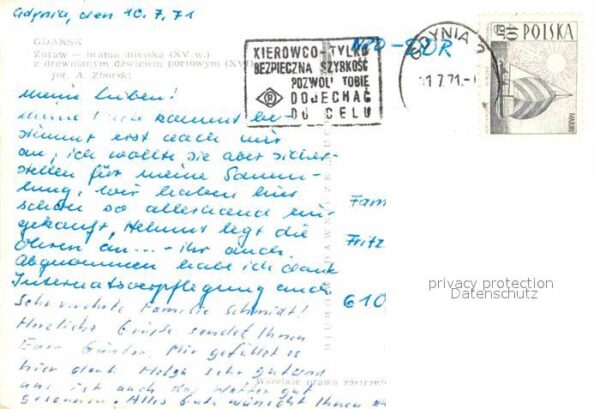 Gdynia, den 10.7.71
GDAŃSK
Żuraw — brama miejska (XV w.)
z drewnianym dźwigiem portowym (XV
fot. A. Zborski
KIEROWCO-TYLKO
BEZPIECZNA SZYBKOŚĆ
POZWOLI TOBIE
DOJECHAĆ
DO CELU
GDYNIA 2
11.7.71.-
POLSKA
40 GR
DDR
Meine Lieben!
Meine Karte kommt be-
stimmt erst nach mir
an, ich wollte sie aber sicher-
stellen für meine Samm-
lung. Wir haben hier
schon so allerhand ein-
gekauft, Helmut legt die
Ohren an... - ihr auch.
Abgenommen habe ich dank
Internatsverpflegung auch
Sehr verehrte Familie Schmidt!
Herzliche Grüße sendet Ihnen
Euer Günter. Mir gefällt es
hier dank Helga sehr gut und
uns ist auch das Wetter gut
gesonnen. Alles Gute wünscht Ihnen
Fam
Fritz
610
privacy protection
Datenschutz
BIURO WYDAWNICZE RUCH
Wszelkie prawa zastrzeż